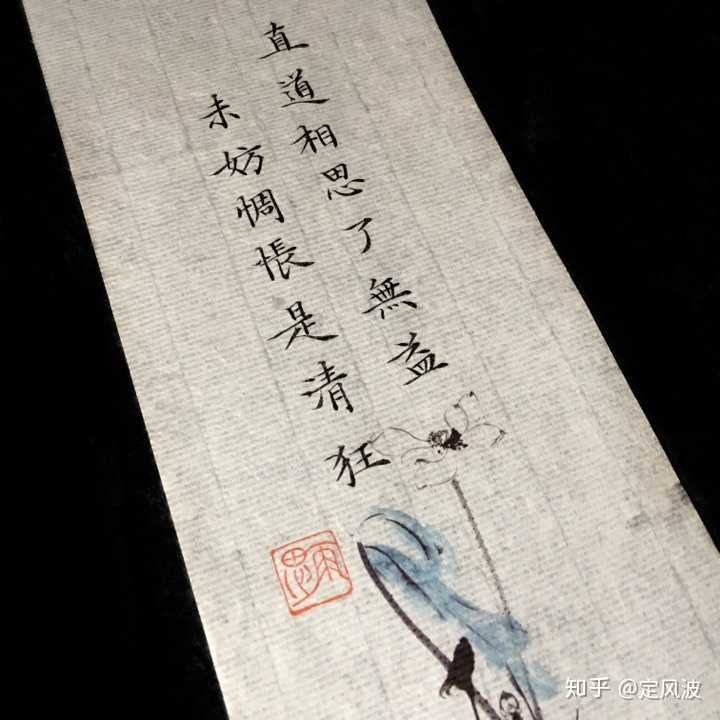 直道相思了無益
未妨惆悵是清狂
知乎 @定风波